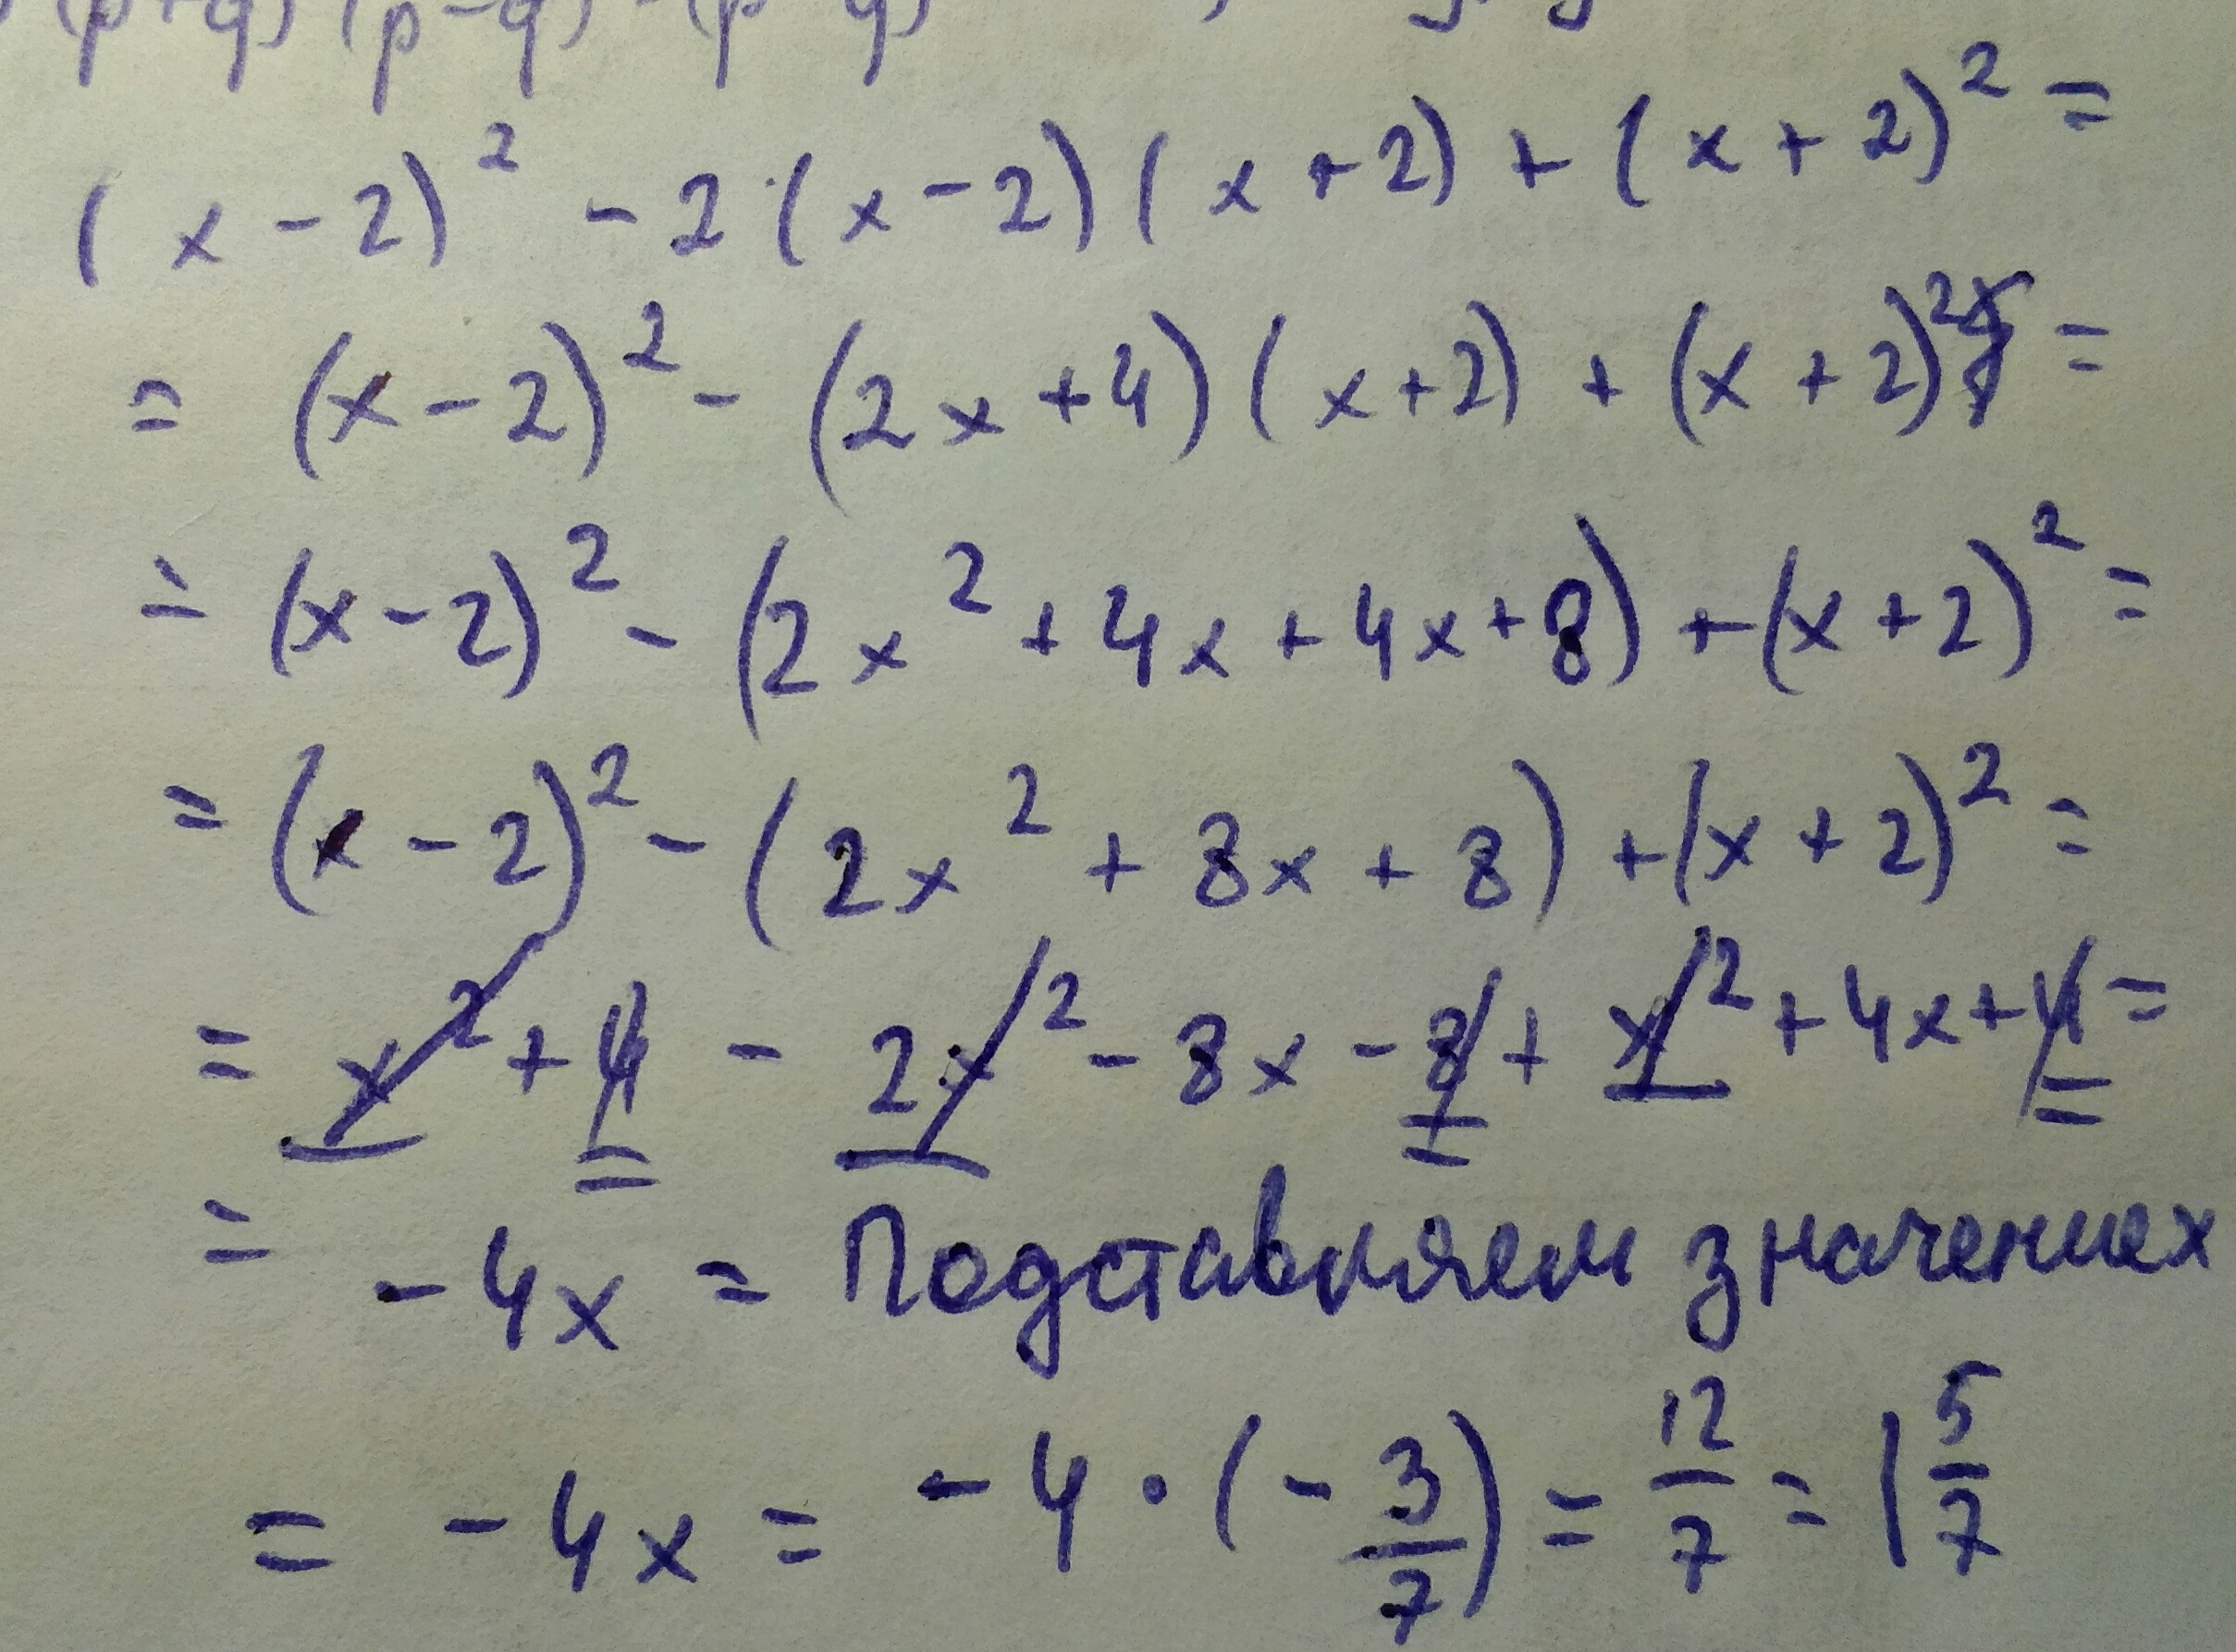 (p+q)(p-q)
(x-2)² -2·(x-2)(x+2)+(x+2)² =
= (x-2)² - (2x+4)(x+2)+(x+2)² =
= (x-2)² - (2x²+4x+4x+8)+(x+2)² =
= (x-2)² - (2x²+8x+8)+(x+2)² =
= x²+4 - 2x² - 8x - 8 + x² + 4x + 4 =
= -4x = Подставляем значения x
= -4x = -4·(-3/7) = 12/7 = 1 5/7